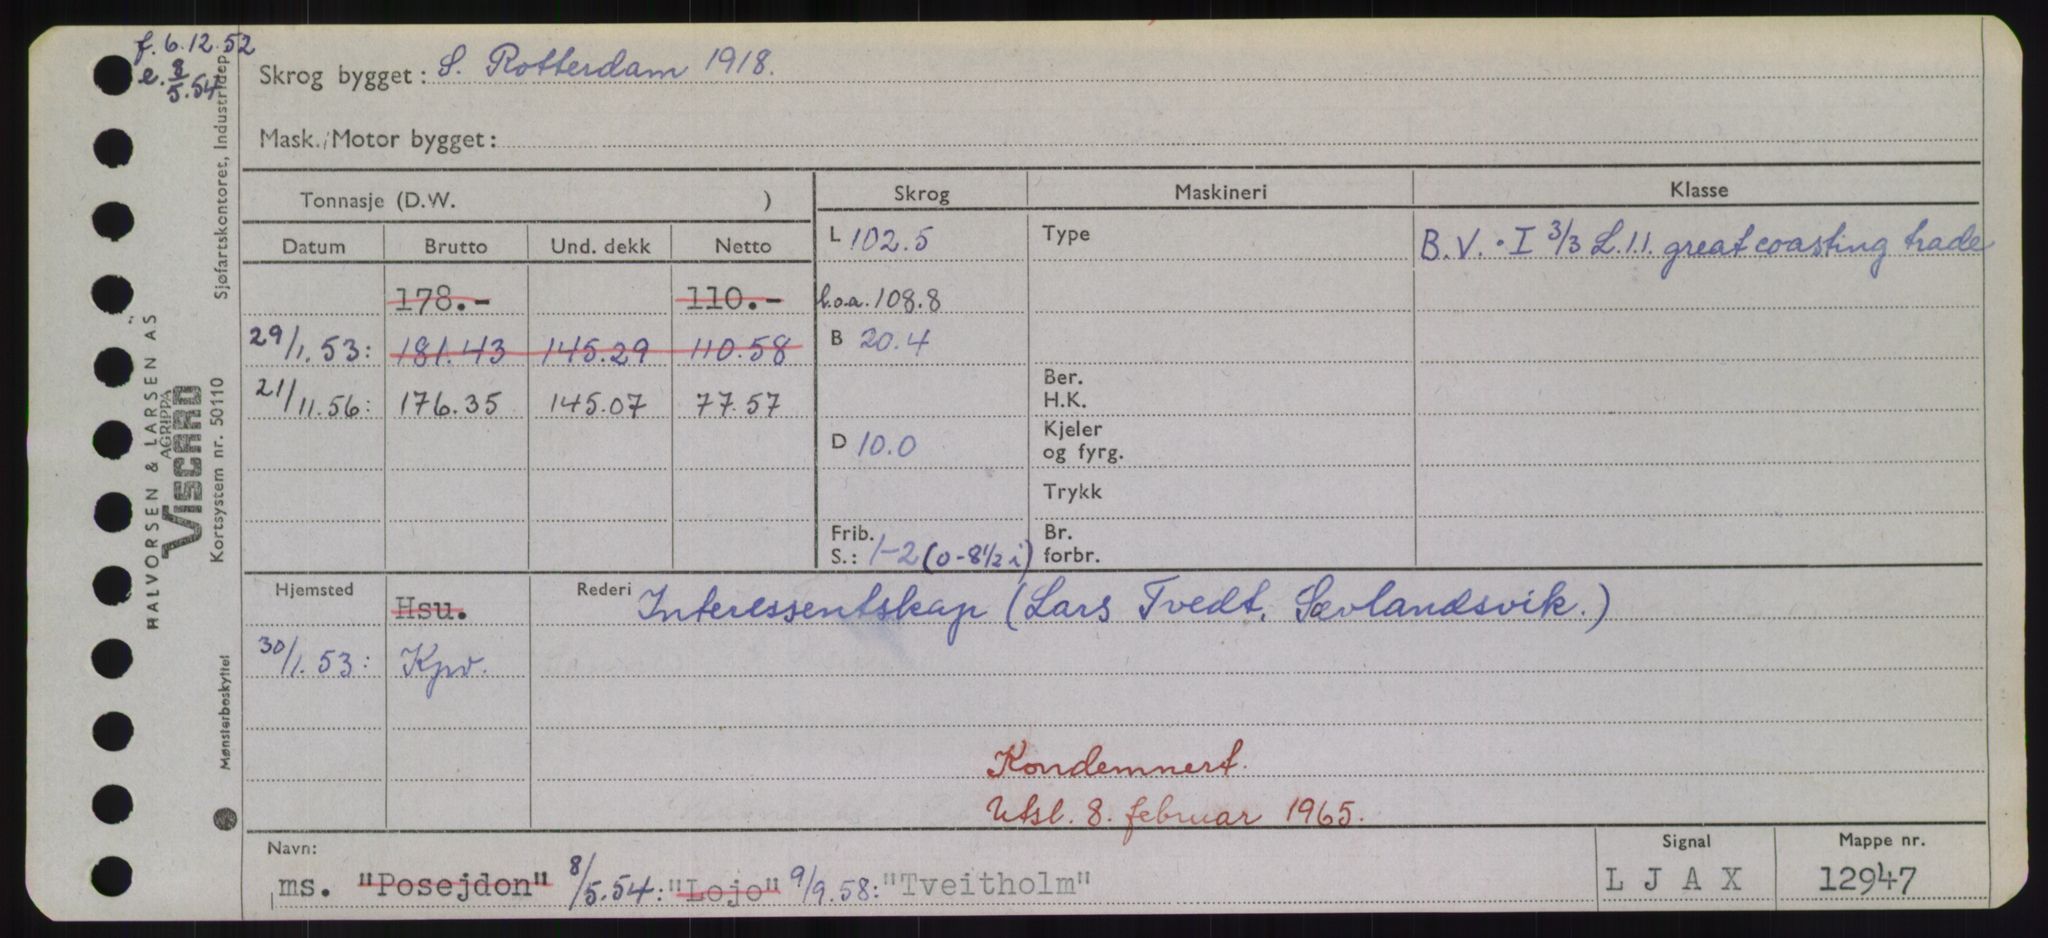 f. 6.12.52
e. 8/5.54
Skrog bygget: S. Rotterdam 1918.
Mask./Motor bygget:
Tonnasje (D.W. )
Skrog Maskineri Klasse
Datum Brutto Und. dekk Netto
L 102.5 Type B.V. • I 3/3 L.1.1. great coasting trade
178.- 110.- l.o.a. 108.8
29/1.53: 181.43 145.29 110.58 B 20.4
21/11.56: 176.35 145.07 77.57
Ber.
H.K.
D 10.0 Kjeler
og fyrg.
Trykk
Frib.
S.: 1-2 (0-8½ i)
Br.
forbr.
Hjemsted Hsu. Rederi Interessentskap (Lars Tvedt, Sævlandsvik.)
30/1.53: Kpv.
Kondemnert.
Utsl. 8. februar 1965.
Navn: Signal Mappe nr.
ms. "Posejdon" 8/5.54: "Lojo" 9/9.58: "Tveitholm" L J A X 12947
HALVORSEN & LARSEN AS
AGRIPPA
VISCARD
Kortsystem nr. 50110
Sjøfartskontoret, Industridep.
Mønsterbeskyttet